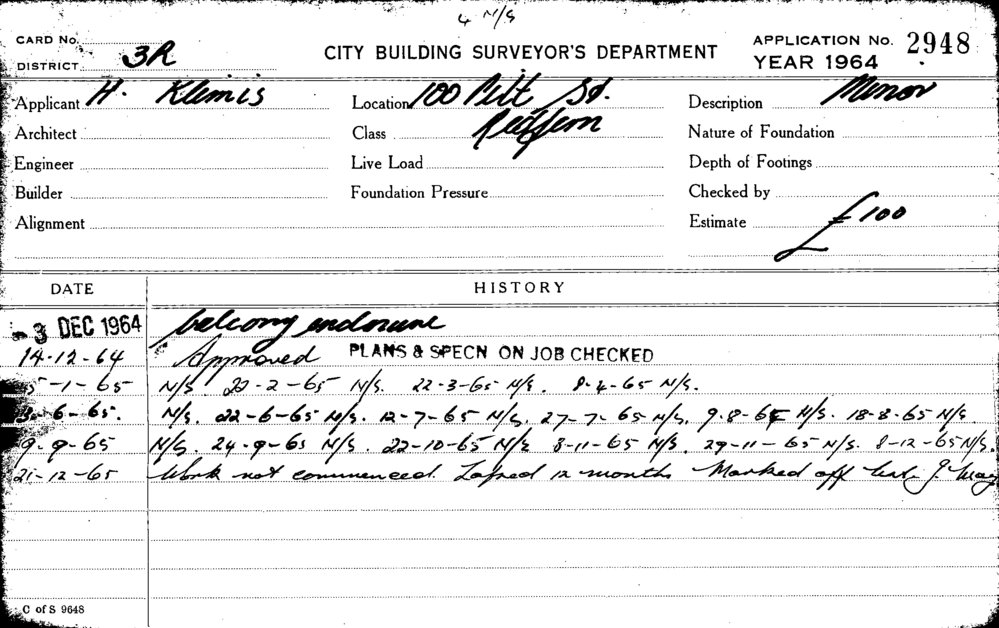 4 N/S
CARD No.
DISTRICT 3R
CITY BUILDING SURVEYOR'S DEPARTMENT
APPLICATION No. 2948
YEAR 1964
Applicant H. Klimis
Location 100 Pitt St.
Description Minor
Architect
Class Redfern
Nature of Foundation
Engineer
Live Load
Depth of Footings
Builder
Foundation Pressure
Checked by
Alignment
Estimate £100
DATE
HISTORY
3 DEC 1964 balcony enclosure
14-12-64 Approved PLANS & SPECN ON JOB CHECKED
5-1-65 N/S 22-2-65 N/S. 22-3-65 N/S. 8-4-65 N/S.
6-65. N/S. 22-6-65 N/S. 12-7-65 N/S. 27-7-65 N/S. 9-8-65 N/S. 18-8-65 N/S
9-9-65 N/S. 24-9-65 N/S. 22-10-65 N/S 8-11-65 N/S. 29-11-65 N/S. 8-12-65 N/S.
21-12-65 Work not commenced. Lapsed 12 months Marked off list J.
C of S 9648